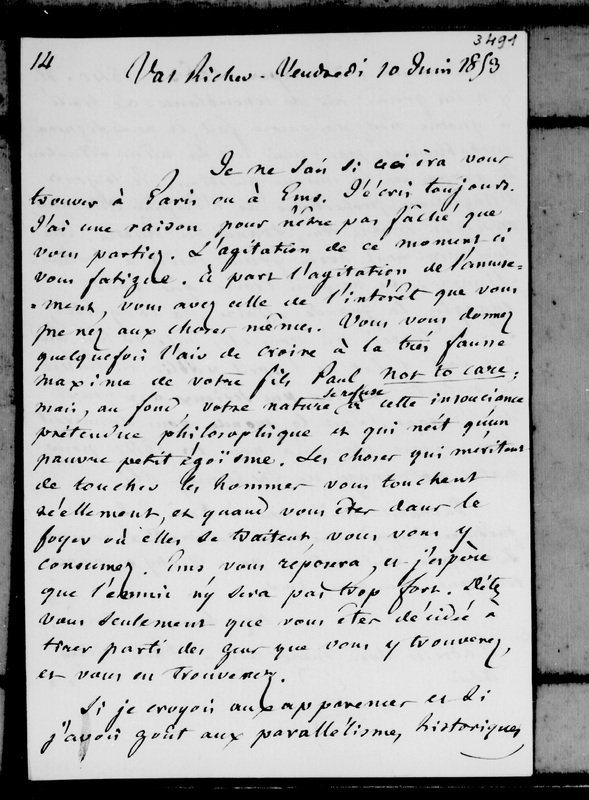 3491
14
Val Richer - Vendredi 10 Juin 1853
Je ne sais si ceci ira vous
trouver à Paris ou à Ems. J'écris toujours.
J'ai une raison pour n'être pas fâché que
vous partiez. L'agitation de ce moment-ci
vous fatigue. à part l'agitation de l'amuse=
=ment, vous avez celle de l'intérêt que vous
prenez aux choses mêmes. Vous vous donnez
quelquefois l'air de croire à la très fausse
maxime de votre fils Paul not to care;
mais, au fond, votre nature se refuse à cette insouciance
prétendue philosophique et qui n'est qu'un
pauvre petit égoïsme. Les choses qui méritent
de toucher les hommes vous touchent
réellement, et quand vous êtes dans le
foyer où elles se traitent vous vous y
consumez. Ems vous reposera, et j'espère
que l'ennui n'y sera pas trop fort. Dites
vous seulement que vous êtes décidée à
tirer parti des gens que vous y trouverez,
et vous en trouverez.
Si je croyois aux apparences et si
j'avois goût aux parallélismes historiques